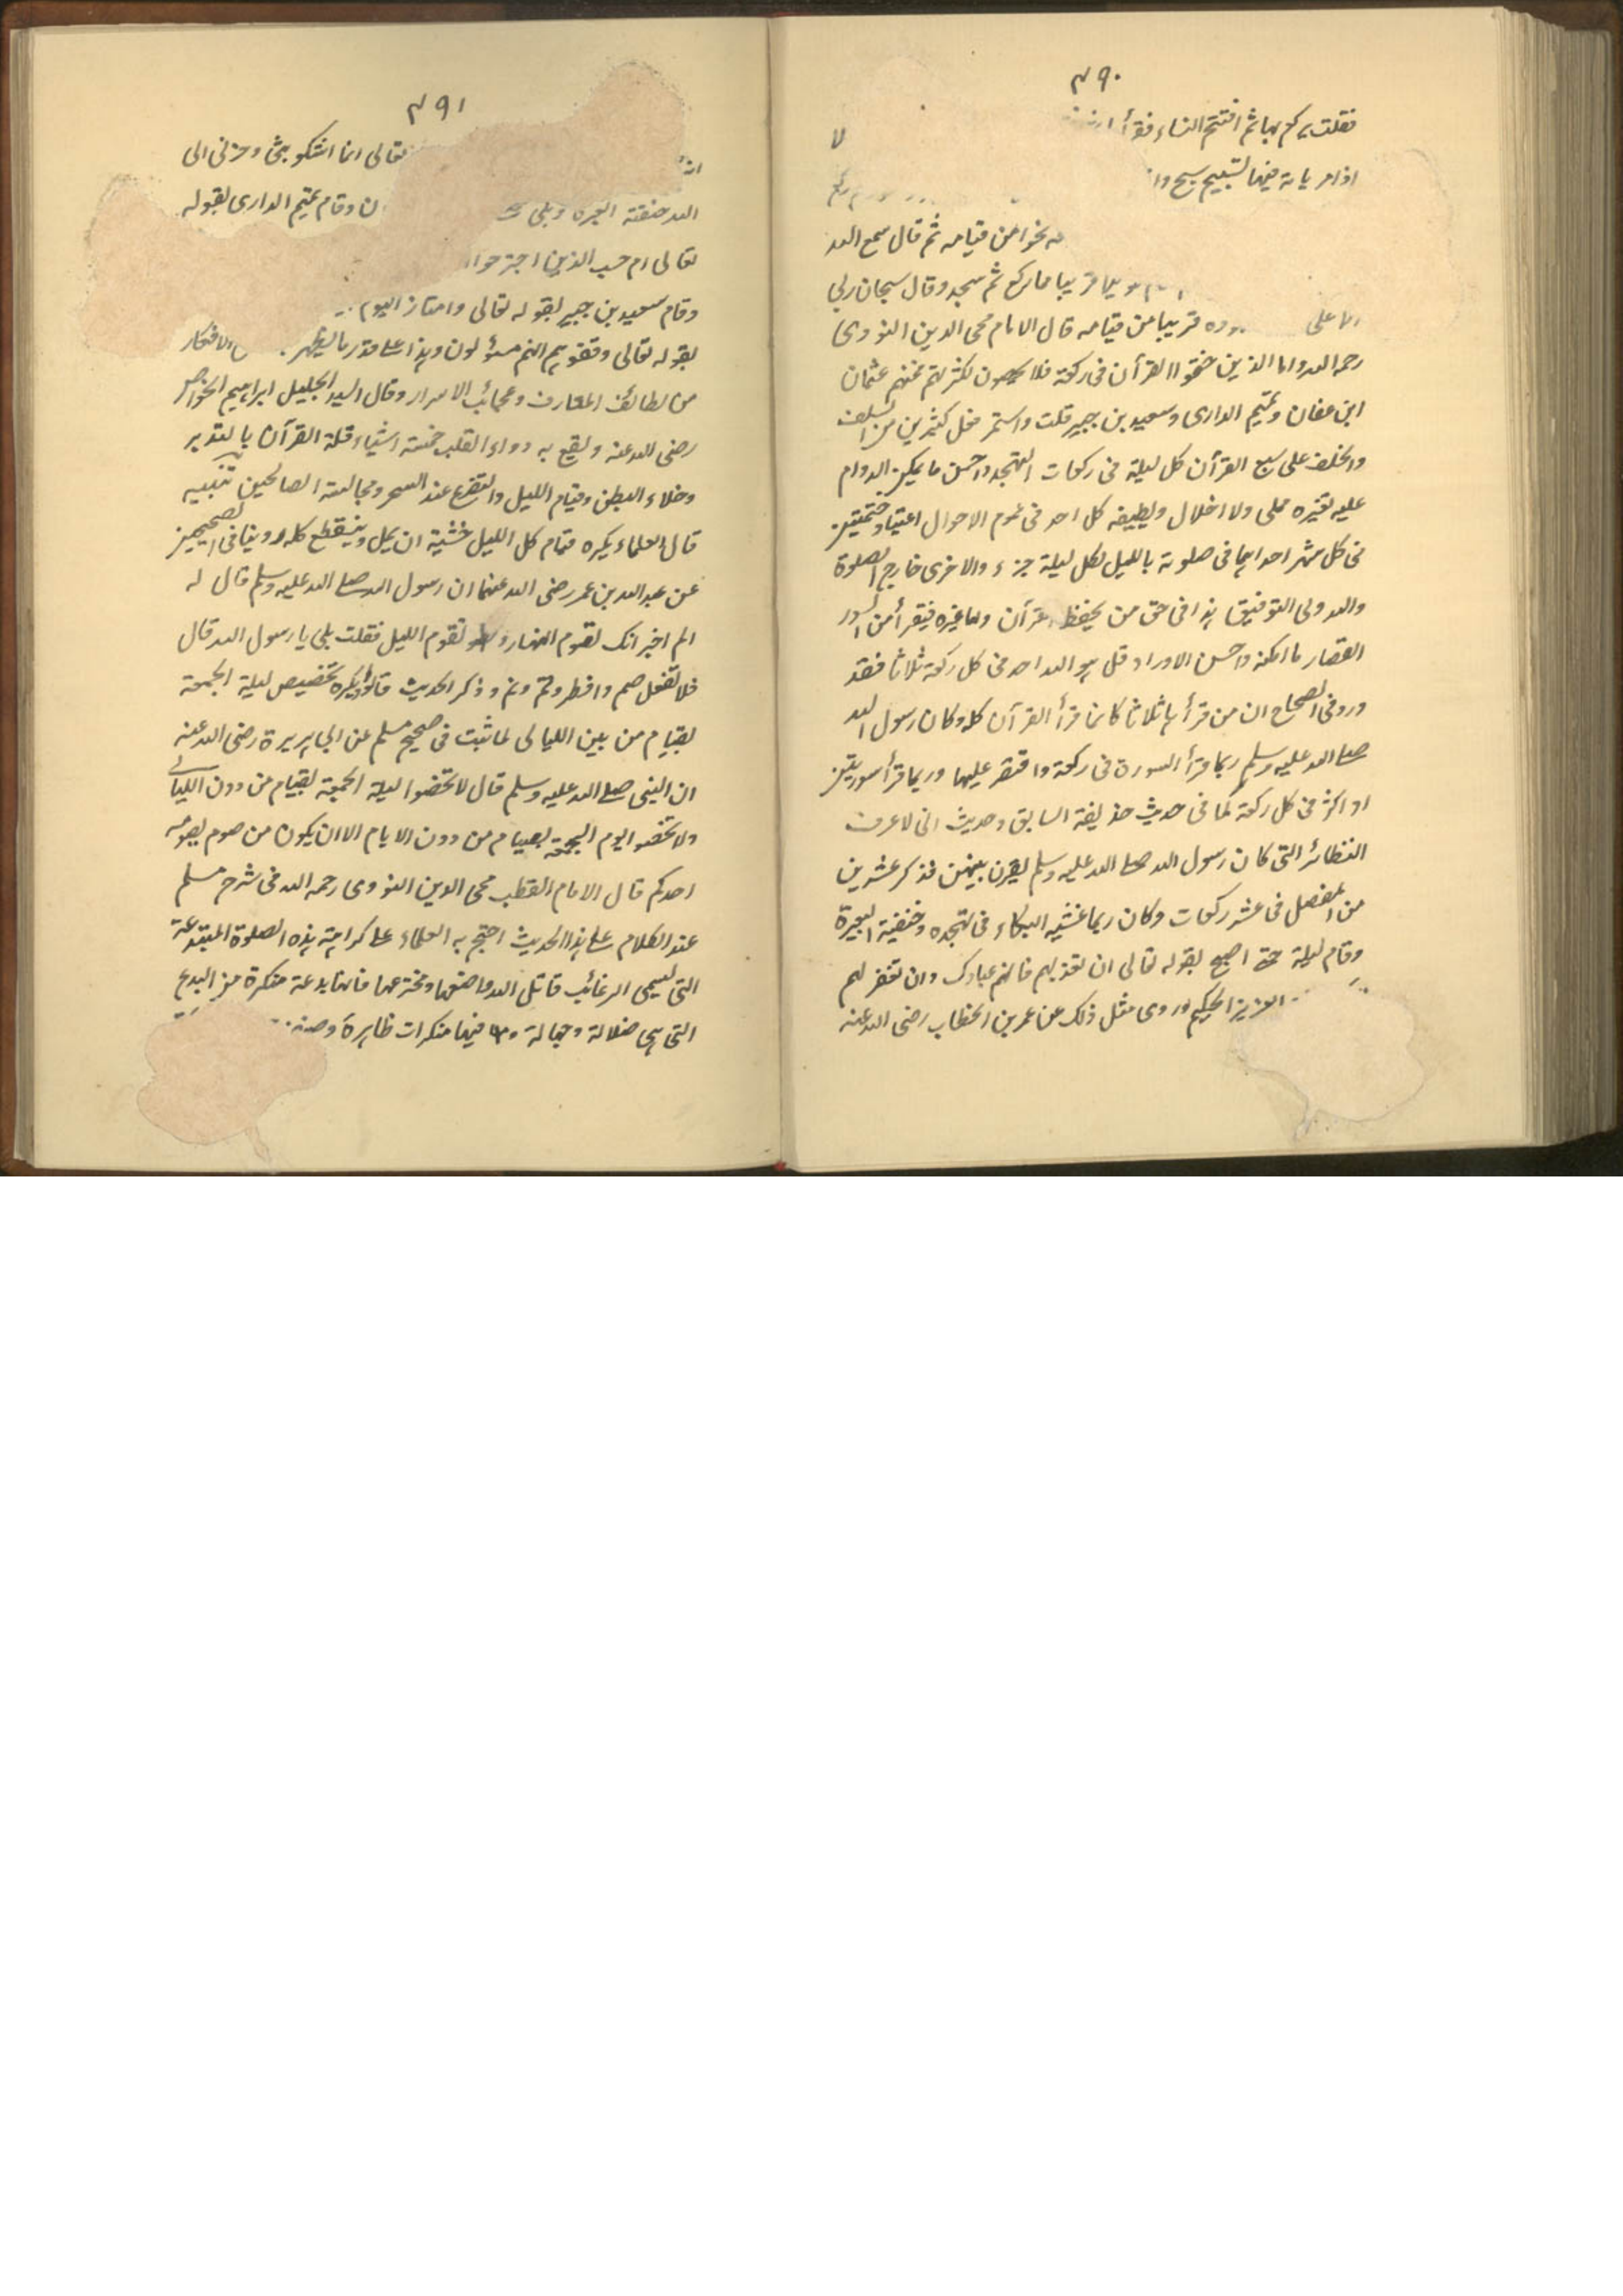 ٤٩٠
فقلت يركع بها ثم افتتح النساء فقرأ
اذا مر باية فيها تسبيح سبح
نحوا من قيامه ثم قال سمع الله
قريبا مما ركع ثم سجد وقال سبحان ربي
الاعلى قريبا من قيامه قال الامام محى الدين النووى
رحمه الله واما الذين ختموا القرأن فى ركعة فلا يحصون لكثرتهم فمنهم عثمان
ابن عفان وتميم الدارى وسعيد بن جبير قلت واستمر فعل كثيرين من السلف
والخلف على سبع القرأن كل ليلة فى ركعات التهجد واحسن ما يمكن الدوام
عليه لغيره ولا اخلال ويطيقه كل احد فى عموم الاحوال اعتياد ختمتين
فى كل شهر احداهما فى صلوته بالليل لكل ليلة جزء والاخرى خارج الصلوة
والله ولى التوفيق هذا فى حق من يحفظ القرآن واما غيره فيقرأ من السور
القصار ما امكنه واحسن الاوراد قل هو الله احد فى كل ركعة ثلاثا فقد
ورد فى الصحاح ان من قرأها ثلاثا كانما قرأ القرآن كله وكان رسول الله
صلى الله عليه وسلم ربما قرأ السورة فى ركعة واقتصر عليها وربما قرأ سورتين
او اكثر فى كل ركعة كما فى حديث حذيفة السابق وحديث انى لاعرف
النظائر التى كان رسول الله صلى الله عليه وسلم يقرن بينهن فذكر عشرين
من المفصل فى عشر ركعات وكان ربما غشيه البكاء فى تهجده وخنقته العبرة
وقام ليلة حتى اصبح بقوله تعالى ان تعذبهم فانهم عبادك وان تغفر لهم
العزيز الحكيم وروى مثل ذلك عن عمر بن الخطاب رضى الله عنه
٤٩١
تعالى انما اشكو بثى وحزنى الى
الله خنقته العبرة وبكى وقام تميم الدارى بقوله
تعالى ام حسب الذين اجترحوا
وقام سعيد بن جبير بقوله تعالى وامتازوا اليوم
بقوله تعالى وقفوهم انهم مسؤلون وهذا على قدر ما يظهر الافكار
من لطائف المعارف وعجائب الاسرار وقال السيد الجليل ابراهيم الخواص
رضى الله عنه ونفع به دواء القلب خمسة اشياء قلة القرآن بالتدبر
وخلاء البطن وقيام الليل والتضرع عند السحر ومجالسة الصالحين تنبيه
قال العلماء يكره قيام كل الليل خشية ان يمل وينقطع كله وروينا فى الصحيحين
عن عبد الله بن عمر رضى الله عنهما ان رسول الله صلى الله عليه وسلم قال له
الم اخبر انك تقوم النهار وتقوم الليل فقلت بلى يا رسول الله قال
فلا تفعل صم وافطر وقم ونم وذكر الحديث قالوا ويكره تخصيص ليلة الجمعة
بقيام من بين الليالى لما ثبت فى صحيح مسلم عن ابى هريرة رضى الله عنه
ان النبى صلى الله عليه وسلم قال لا تخصوا ليلة الجمعة بقيام من دون الليالى
ولا تخصوا يوم الجمعة بصيام من دون الايام الا ان يكون من صوم يصومه
احدكم قال الامام القطب محى الدين النووى رحمه الله فى شرح مسلم
عند الكلام على هذا الحديث احتج به العلماء على كراهية هذه الصلوة المبتدعة
التى تسمى الرغائب قاتل الله واضعها ومخترعها فانها بدعة منكرة من البدع
التى هى ضلالة وجهالة فيها منكرات ظاهرة